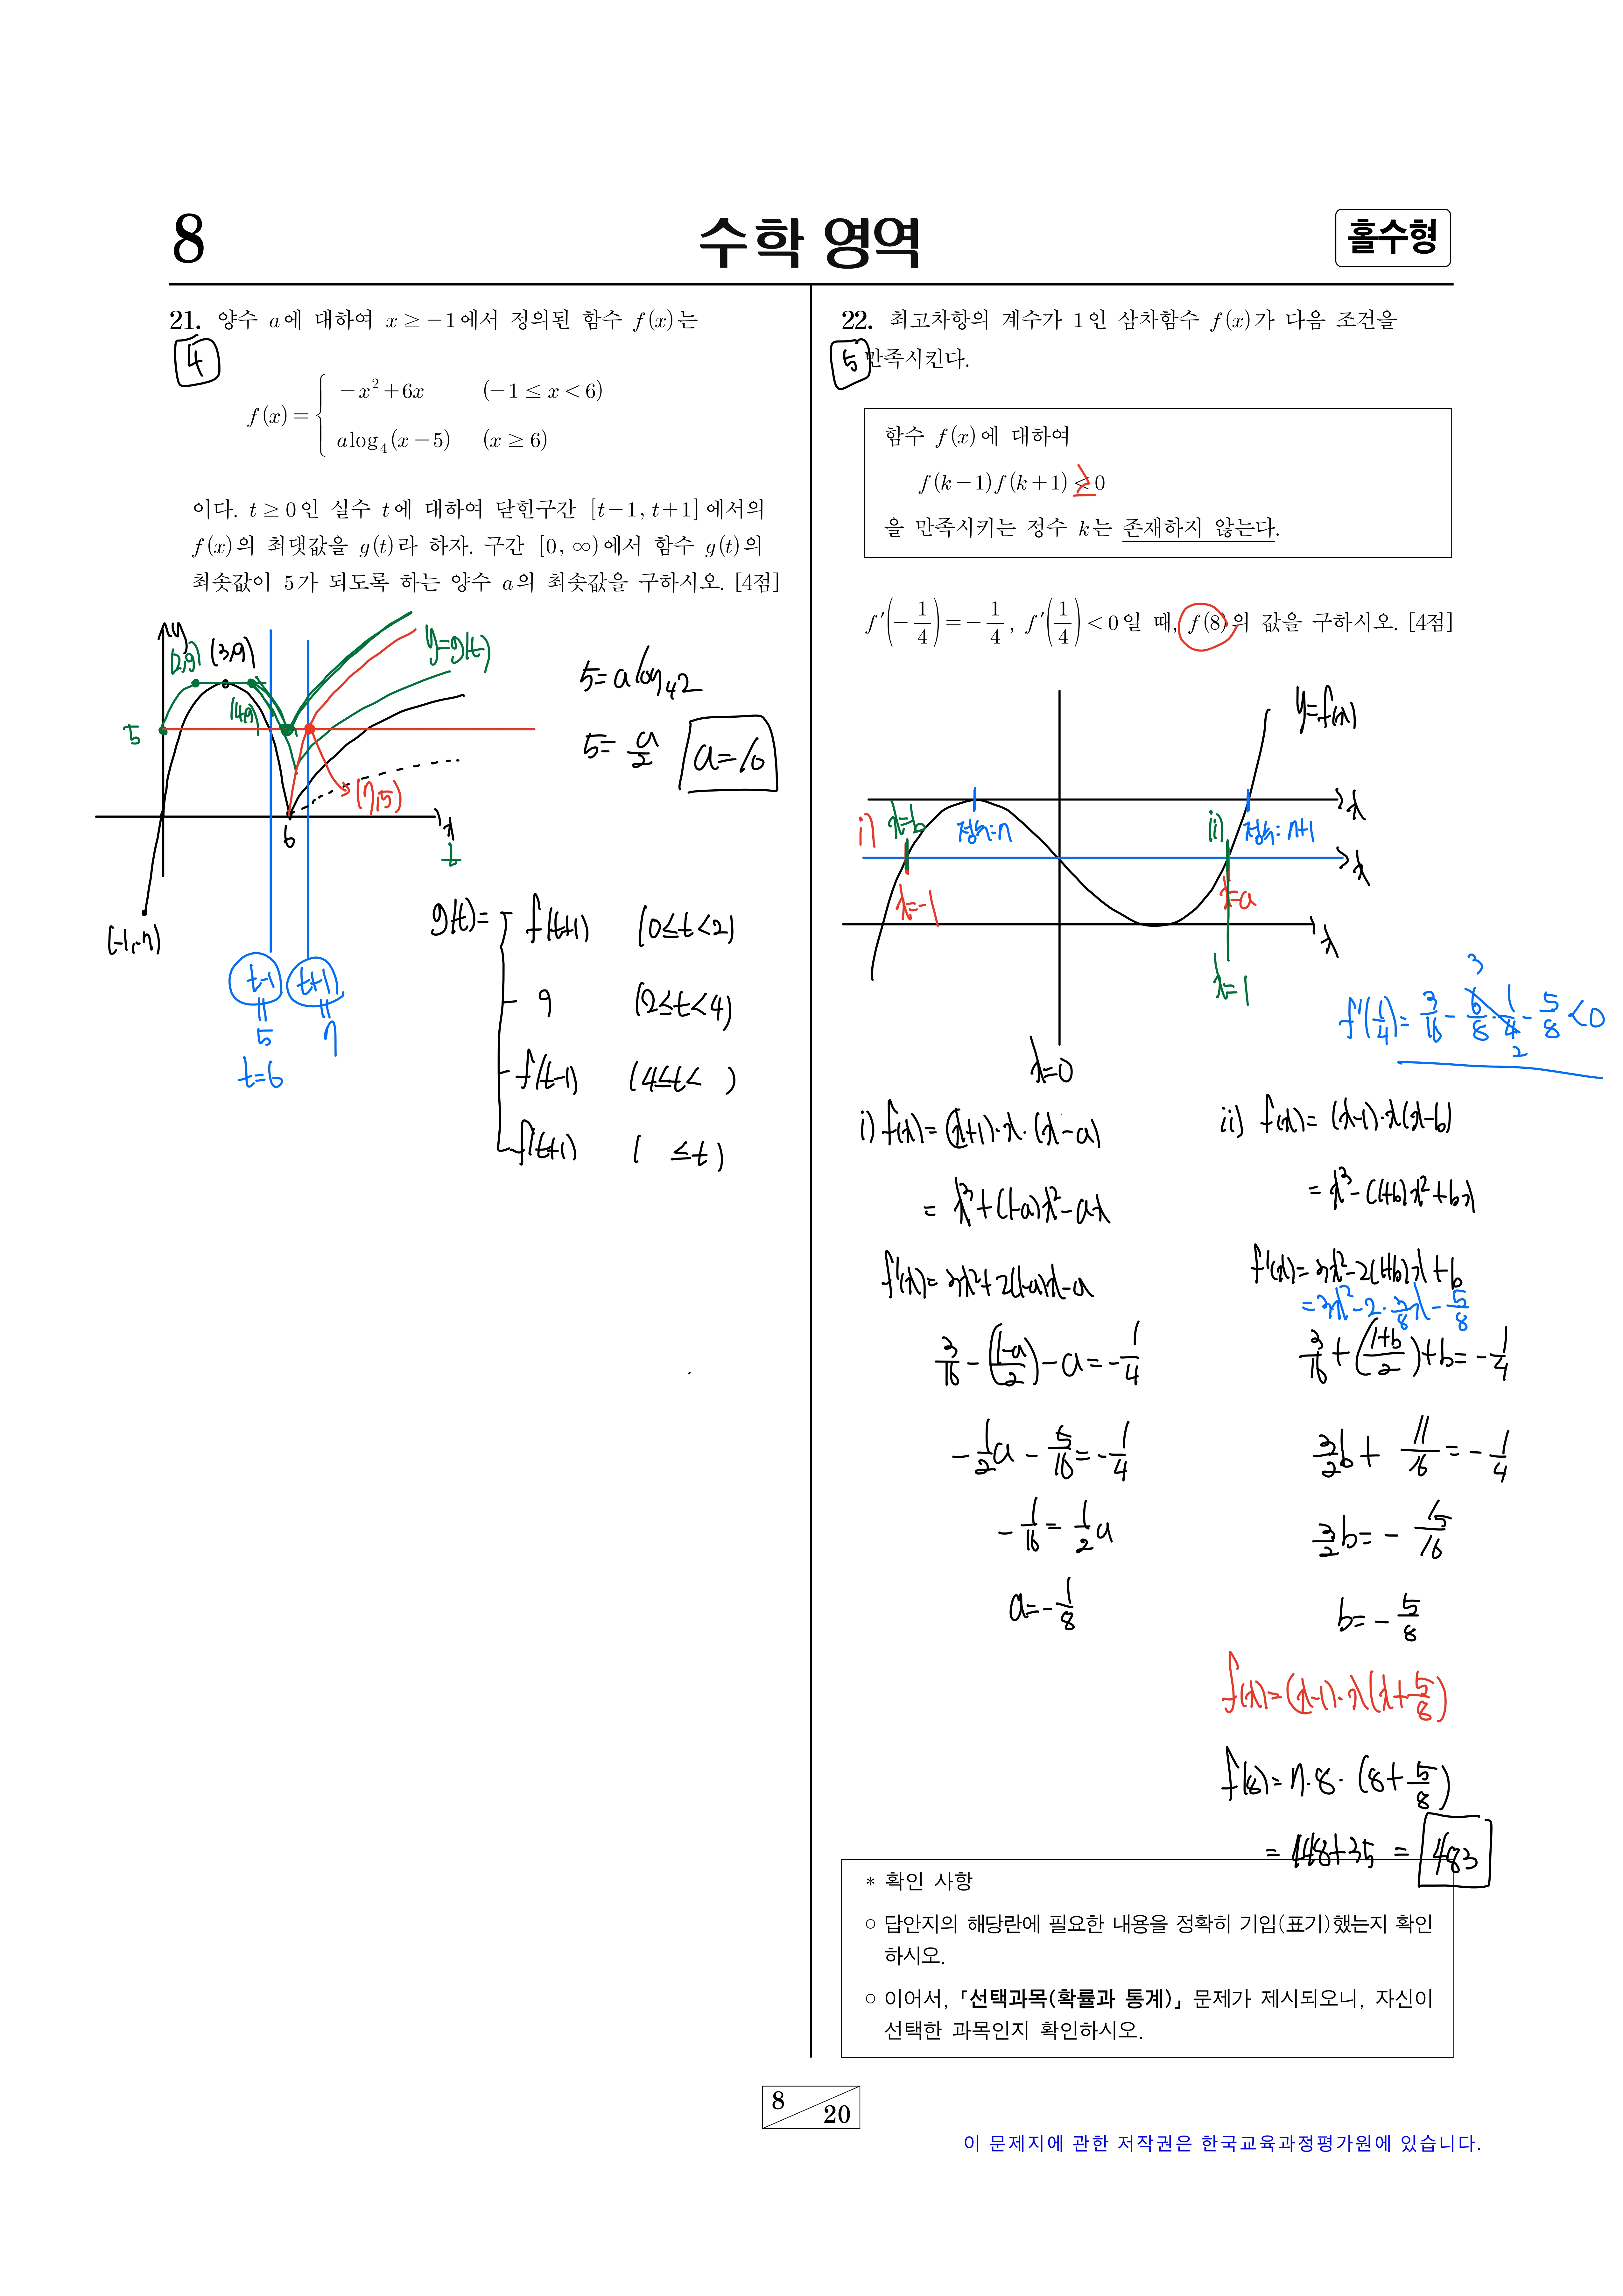 8
수학 영역
홀수형
21. 양수 a에 대하여 x ≥ −1에서 정의된 함수 f(x)는
4
f(x) = { −x²+6x (−1 ≤ x < 6)
a log₄(x−5) (x ≥ 6)
이다. t ≥ 0인 실수 t에 대하여 닫힌구간 [t−1, t+1]에서의
f(x)의 최댓값을 g(t)라 하자. 구간 [0, ∞)에서 함수 g(t)의
최솟값이 5가 되도록 하는 양수 a의 최솟값을 구하시오. [4점]
y
(2,9) (3,9)
y=g(t)
(4,9)
5
(7,5)
6
x
t
(-1,-7)
t-1 t+1
=
5
=
7
t=6
5=a log₄2
5= a/2
a=10
g(t)= f(t+1) (0≤t<2)
9 (2≤t<4)
f(t-1) (4≤t< )
f(t+1) ( ≤t)
22. 최고차항의 계수가 1인 삼차함수 f(x)가 다음 조건을
5
만족시킨다.
함수 f(x)에 대하여
f(k−1)f(k+1) < 0
≥
을 만족시키는 정수 k는 존재하지 않는다.
f′(−1/4) = −1/4, f′(1/4) < 0일 때, f(8)의 값을 구하시오. [4점]
y=f(x)
x
i) x=b 정수:n ii) 정수:n+1
x
x=-1 x=a
x
x=1
x=0
f'(1/4)= 3/16 - 6/8·1/4 - 5/8 <0
3
2
i) f(x)= (x+1)·x·(x-a)
= x³+(1-a)x²-ax
f'(x)= 3x²+2(1-a)x-a
3/16 - ((1-a)/2) - a = -1/4
-1/2a - 5/16 = -1/4
-1/16 = 1/2a
a=-1/8
ii) f(x)= (x-1)·x(x-b)
= x³-(1+b)x²+bx
f'(x)= 3x²-2(1+b)x+b
= 3x²-2·3/8x-5/8
3/16 + ((1+b)/2) + b = -1/4
3/2b + 11/16 = -1/4
3/2b = - 15/16
b= - 5/8
f(x)= (x-1)·x(x+5/8)
f(8)= 7·8·(8+5/8)
= 448+35 = 483
* 확인 사항
○ 답안지의 해당란에 필요한 내용을 정확히 기입(표기)했는지 확인
하시오.
○ 이어서, 「선택과목(확률과 통계)」 문제가 제시되오니, 자신이
선택한 과목인지 확인하시오.
8
20
이 문제지에 관한 저작권은 한국교육과정평가원에 있습니다.